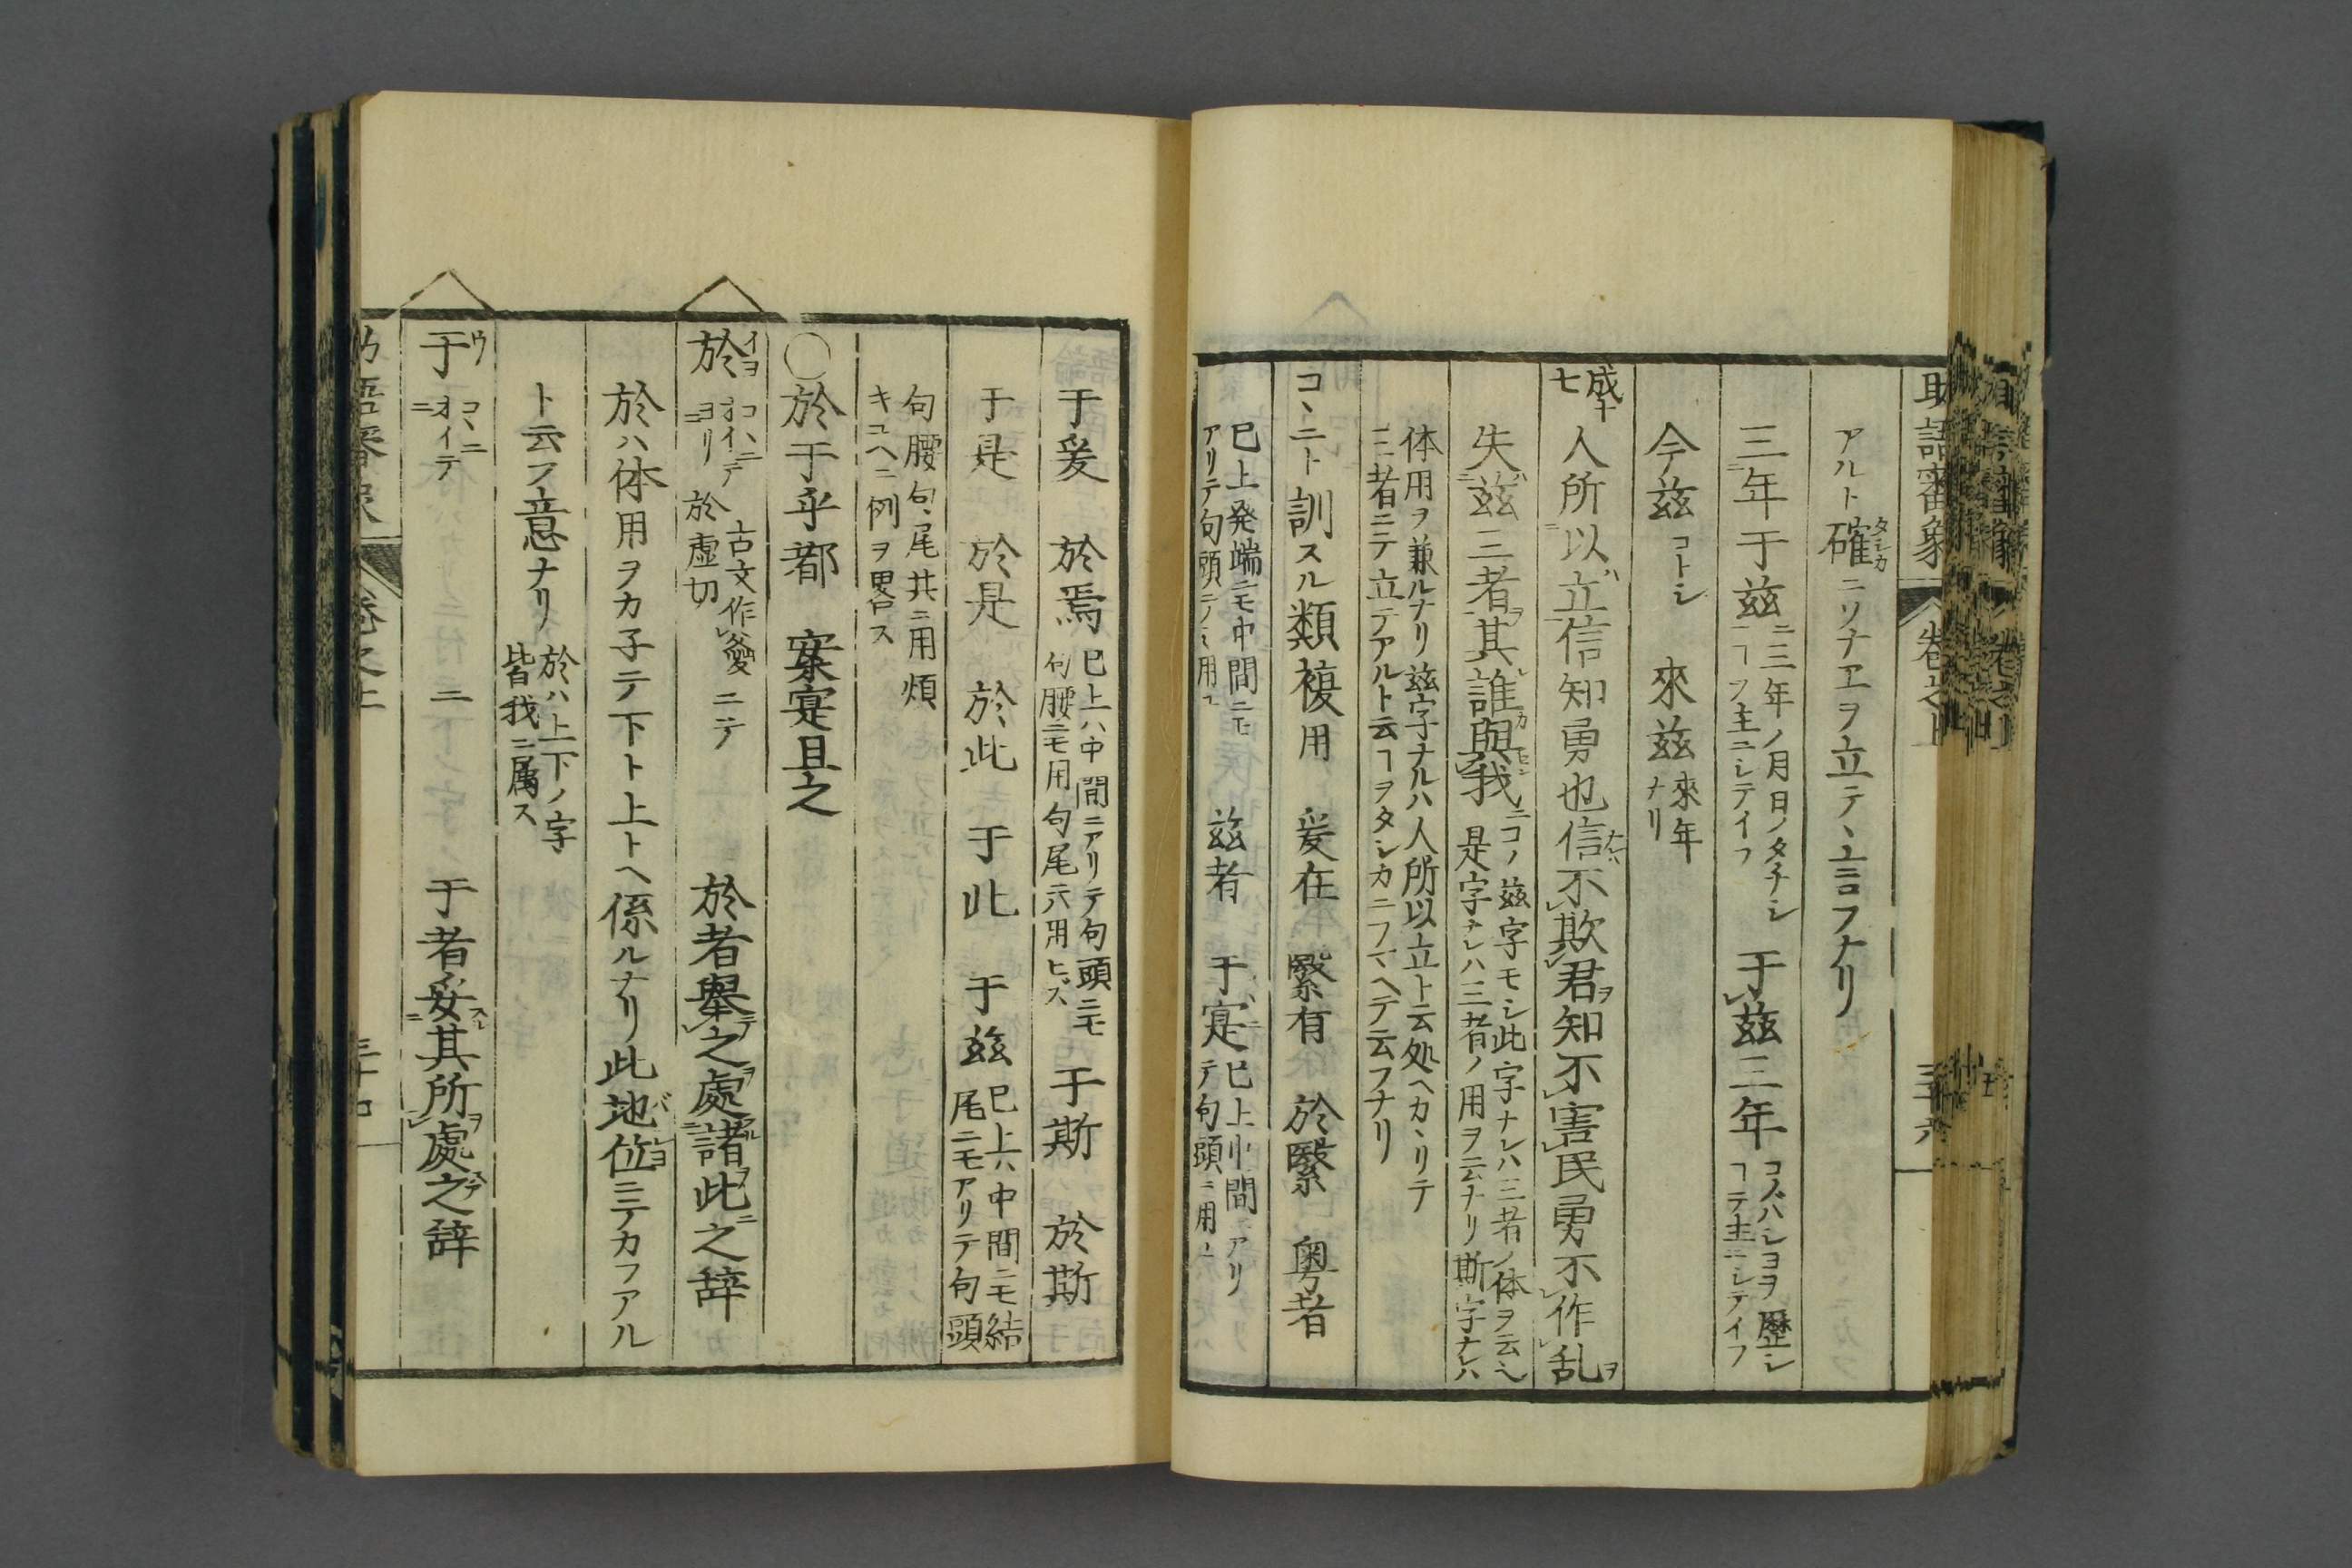 助語審象 卷之上 三十六
アルト確タシカニソナヱヲ立テヽ言フナリ
三年于茲 三年ノ月日ノタチシヿフ主ニシテイフ 于茲三年 コノバシヨヲ歷シヿテ主ニシテイフ
今茲コトシ 來茲來年ナリ
成十七 人所以立信知勇也信不欺君知不害民勇不作乱
失茲三者其誰與我 コノ茲字モシ此字ナレハ三者ノ体ヲ云 是字ナレハ三者ノ用ヲ云ナリ斯字ナレハ
体用ヲ兼ルナリ茲字ナルハ人所以立ト云処ヘカヽリテ三者ニテ立テアルト云ヿヲタシカニフマヘテ云フナリ
コヽニト訓スル類複用 爰在 緊有 於緊 粤者
已上発端ニモ中間ニモアリテ句頭ニノミ用ユ 茲者 于寔 已上中間ニアリテ句頭ニ用ユ
于爰 於焉 已上ハ中間ニアリテ句頭ニモ句腰ニモ用句尾ニハ用ヒス 于斯 於斯
于是 於是 於此 于此 于茲 已上ハ中間ニモ結尾ニモアリテ句頭
句腰句尾共ニ用煩キユヘニ例ヲ畧ス
○於于乎都 寀寔且之
於イヨ コヽニオイテヨリ 於虛切 古文作 ニテ 於者舉之處諸此之辞
於ハ体用ヲカ子テ下ト上トヘ係ルナリ此地位バシヨニテカフアル
ト云フ意ナリ 於ハ上下ノ字皆我ニ属ス
于ウ コヽニオイテニ ニ 于者妥其所處之辞